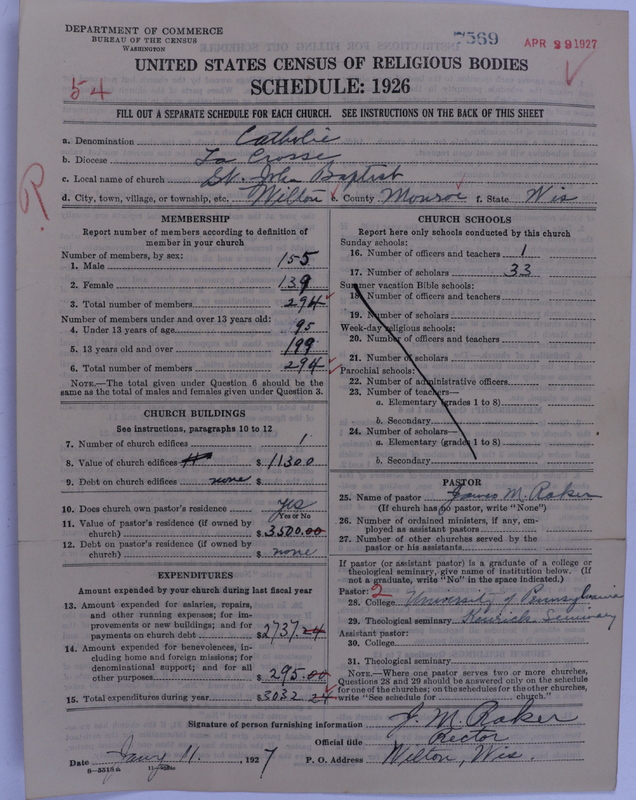 DEPARTMENT OF COMMERCE
BUREAU OF THE CENSUS
WASHINGTON
7569
APR 29 1927
UNITED STATES CENSUS OF RELIGIOUS BODIES
SCHEDULE: 1926
54
FILL OUT A SEPARATE SCHEDULE FOR EACH CHURCH. SEE INSTRUCTIONS ON THE BACK OF THIS SHEET
a. Denomination Catholic
b. Diocese La Crosse
c. Local name of church St. John Baptist
d. City, town, village, or township, etc. Wilton e. County Monroe f. State Wis
R
MEMBERSHIP
Report number of members according to definition of
member in your church
Number of members, by sex:
1. Male 155
2. Female 139
3. Total number of members 294
Number of members under and over 13 years old:
4. Under 13 years of age 95
5. 13 years old and over 199
6. Total number of members 294
NOTE.—The total given under Question 6 should be
same as the total of males and females given under Question 3.
CHURCH BUILDINGS
See instructions, paragraphs 10 to 12
7. Number of church edifices 1
8. Value of church edifices $ 11300
9. Debt on church edifices none $
10. Does church own pastor's residence? yes
Yes or No
11. Value of pastor's residence (if owned by
church) $ 3,500.00
12. Debt on pastor's residence (if owned by
church) $ none
EXPENDITURES
Amount expended by your church during last fiscal year
13. Amount expended for salaries, repairs,
and other running expenses; for im-
provements or new buildings; and for
payments on church debt $ 2737.24
14. Amount expended for benevolences, in-
cluding home and foreign missions; for
denominational support; and for all
other purposes $ 295.00
15. Total expenditures during year $ 3032 24
CHURCH SCHOOLS
Report here only schools conducted by this church
Sunday schools:
16. Number of officers and teachers 1
17. Number of scholars 33
Summer vacation Bible schools:
18. Number of officers and teachers
19. Number of scholars
Week-day religious schools:
20. Number of officers and teachers
21. Number of scholars
Parochial schools:
22. Number of administrative officers
23. Number of teachers—
a. Elementary (grades 1 to 8)
b. Secondary
24. Number of scholars—
a. Elementary (grades 1 to 8)
b. Secondary
PASTOR
25. Name of pastor James M. Raker
(If church has no pastor, write "None")
26. Number of ordained ministers, if any, em-
ployed as assistant pastors
27. Number of other churches served by the
pastor or his assistants
If pastor (or assistant pastor) is a graduate of a college or
theological seminary, give name of institution below. (If
not a graduate, write "No" in the space indicated.)
Pastor: 2
28. College University of Pennsylvania
29. Theological seminary Kenrick Seminary
Assistant pastor:
30. College
31. Theological seminary
NOTE.—Where one pastor serves two or more churches,
Questions 28 and 29 should be answered only on the schedule
for one of the churches; on the schedules for the other churches,
write "See schedule for church."
Signature of person furnishing information J. M. Raker
Official title Rector
Date Jany 11, 1927 P. O. Address Wilton, Wis.